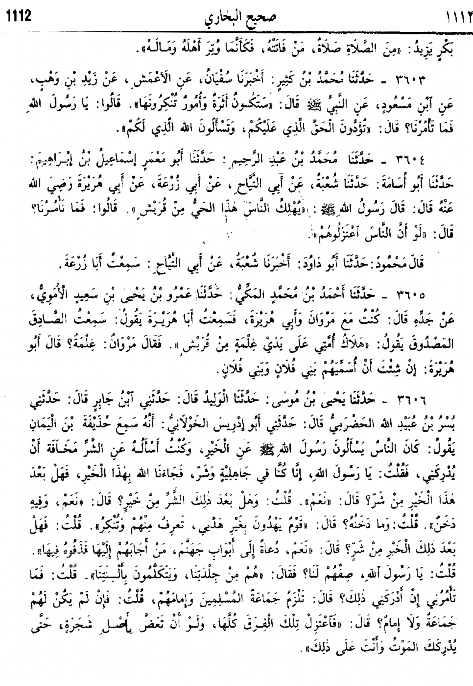 1112 صحيح البخاري ١١١٢
بَكْرٍ يَزِيدُ: «مِنَ الصَّلَاةِ صَلَاةٌ، مَنْ فَاتَتْهُ، فَكَأَنَّمَا وُتِرَ أَهْلَهُ وَمَالَهُ».
٣٦٠٣ - حَدَّثَنَا مُحَمَّدُ بْنُ كَثِيرٍ: أَخْبَرَنَا سُفْيَانُ، عَنِ الْأَعْمَشِ، عَنْ زَيْدِ بْنِ وَهْبٍ،
عَنِ ابْنِ مَسْعُودٍ، عَنِ النَّبِيِّ ﷺ قَالَ: «سَتَكُونُ أَثَرَةٌ وَأُمُورٌ تُنْكِرُونَهَا». قَالُوا: يَا رَسُولَ اللهِ
فَمَا تَأْمُرُنَا؟ قَالَ: «تُؤَدُّونَ الْحَقَّ الَّذِي عَلَيْكُمْ، وَتَسْأَلُونَ اللهَ الَّذِي لَكُمْ».
٣٦٠٤ - حَدَّثَنَا مُحَمَّدُ بْنُ عَبْدِ الرَّحِيمِ: حَدَّثَنَا أَبُو مَعْمَرٍ إِسْمَاعِيلُ بْنُ إِبْرَاهِيمَ:
حَدَّثَنَا أَبُو أُسَامَةَ: حَدَّثَنَا شُعْبَةُ، عَنْ أَبِي التَّيَّاحِ، عَنْ أَبِي زُرْعَةَ، عَنْ أَبِي هُرَيْرَةَ رَضِيَ اللهُ
عَنْهُ قَالَ: قَالَ رَسُولُ اللهِ ﷺ: «يُهْلِكُ النَّاسَ هَذَا الْحَيُّ مِنْ قُرَيْشٍ». قَالُوا: فَمَا تَأْمُرُنَا؟
قَالَ: «لَوْ أَنَّ النَّاسَ اعْتَزَلُوهُمْ».
قَالَ مَحْمُودٌ: حَدَّثَنَا أَبُو دَاوُدَ: أَخْبَرَنَا شُعْبَةُ، عَنْ أَبِي التَّيَّاحِ: سَمِعْتُ أَبَا زُرْعَةَ.
٣٦٠٥ - حَدَّثَنَا أَحْمَدُ بْنُ مُحَمَّدٍ الْمَكِّيُّ: حَدَّثَنَا عَمْرُو بْنُ يَحْيَى بْنِ سَعِيدٍ الْأُمَوِيُّ،
عَنْ جَدِّهِ قَالَ: كُنْتُ مَعَ مَرْوَانَ وَأَبِي هُرَيْرَةَ، فَسَمِعْتُ أَبَا هُرَيْرَةَ يَقُولُ: سَمِعْتُ الصَّادِقَ
الْمَصْدُوقَ يَقُولُ: «هَلَاكُ أُمَّتِي عَلَى يَدَيْ غِلْمَةٍ مِنْ قُرَيْشٍ». فَقَالَ مَرْوَانُ: غِلْمَةٌ؟ قَالَ أَبُو
هُرَيْرَةَ: إِنْ شِئْتَ أَنْ أُسَمِّيَهُمْ بَنِي فُلَانٍ وَبَنِي فُلَانٍ.
٣٦٠٦ - حَدَّثَنَا يَحْيَى بْنُ مُوسَى: حَدَّثَنَا الْوَلِيدُ قَالَ: حَدَّثَنِي ابْنُ جَابِرٍ قَالَ: حَدَّثَنِي
بُسْرُ بْنُ عُبَيْدِ اللهِ الْحَضْرَمِيُّ: قَالَ: حَدَّثَنِي أَبُو إِدْرِيسَ الْخَوْلَانِيُّ: أَنَّهُ سَمِعَ حُذَيْفَةَ بْنَ الْيَمَانِ
يَقُولُ: كَانَ النَّاسُ يَسْأَلُونَ رَسُولَ اللهِ ﷺ عَنِ الْخَيْرِ، وَكُنْتُ أَسْأَلُهُ عَنِ الشَّرِّ مَخَافَةَ أَنْ
يُدْرِكَنِي، فَقُلْتُ: يَا رَسُولَ اللهِ، إِنَّا كُنَّا فِي جَاهِلِيَّةٍ وَشَرٍّ، فَجَاءَنَا اللهُ بِهَذَا الْخَيْرِ، فَهَلْ بَعْدَ
هَذَا الْخَيْرِ مِنْ شَرٍّ؟ قَالَ: «نَعَمْ». قُلْتُ: وَهَلْ بَعْدَ ذَلِكَ الشَّرِّ مِنْ خَيْرٍ؟ قَالَ: «نَعَمْ، وَفِيهِ
دَخَنٌ». قُلْتُ: وَمَا دَخَنُهُ؟ قَالَ: «قَوْمٌ يَهْدُونَ بِغَيْرِ هَدْيِي، تَعْرِفُ مِنْهُمْ وَتُنْكِرُ». قُلْتُ: فَهَلْ
بَعْدَ ذَلِكَ الْخَيْرِ مِنْ شَرٍّ؟ قَالَ: «نَعَمْ، دُعَاةٌ إِلَى أَبْوَابِ جَهَنَّمَ، مَنْ أَجَابَهُمْ إِلَيْهَا قَذَفُوهُ فِيهَا».
قُلْتُ: يَا رَسُولَ اللهِ، صِفْهُمْ لَنَا؟ فَقَالَ: «هُمْ مِنْ جِلْدَتِنَا، وَيَتَكَلَّمُونَ بِأَلْسِنَتِنَا». قُلْتُ: فَمَا
تَأْمُرُنِي إِنْ أَدْرَكَنِي ذَلِكَ؟ قَالَ: تَلْزَمُ جَمَاعَةَ الْمُسْلِمِينَ وَإِمَامَهُمْ، قُلْتُ: فَإِنْ لَمْ يَكُنْ لَهُمْ
جَمَاعَةٌ وَلَا إِمَامٌ؟ قَالَ: «فَاعْتَزِلْ تِلْكَ الْفِرَقَ كُلَّهَا، وَلَوْ أَنْ تَعَضَّ بِأَصْلِ شَجَرَةٍ، حَتَّى
يُدْرِكَكَ الْمَوْتُ وَأَنْتَ عَلَى ذَلِكَ».